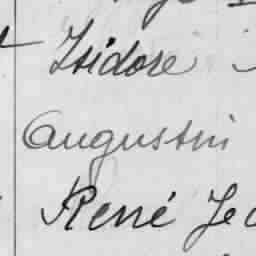 Isidore
Augustin
René